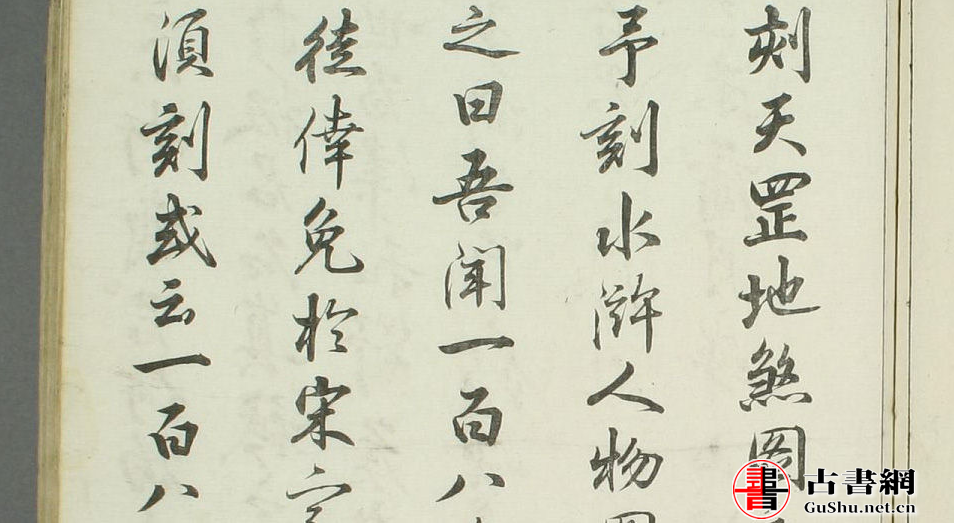 刻天罡地煞图
予刻水滸人物
之曰吾闻一百八
徒倖免於宋
須刻或云一百八
古書網
GuShu.net.cn